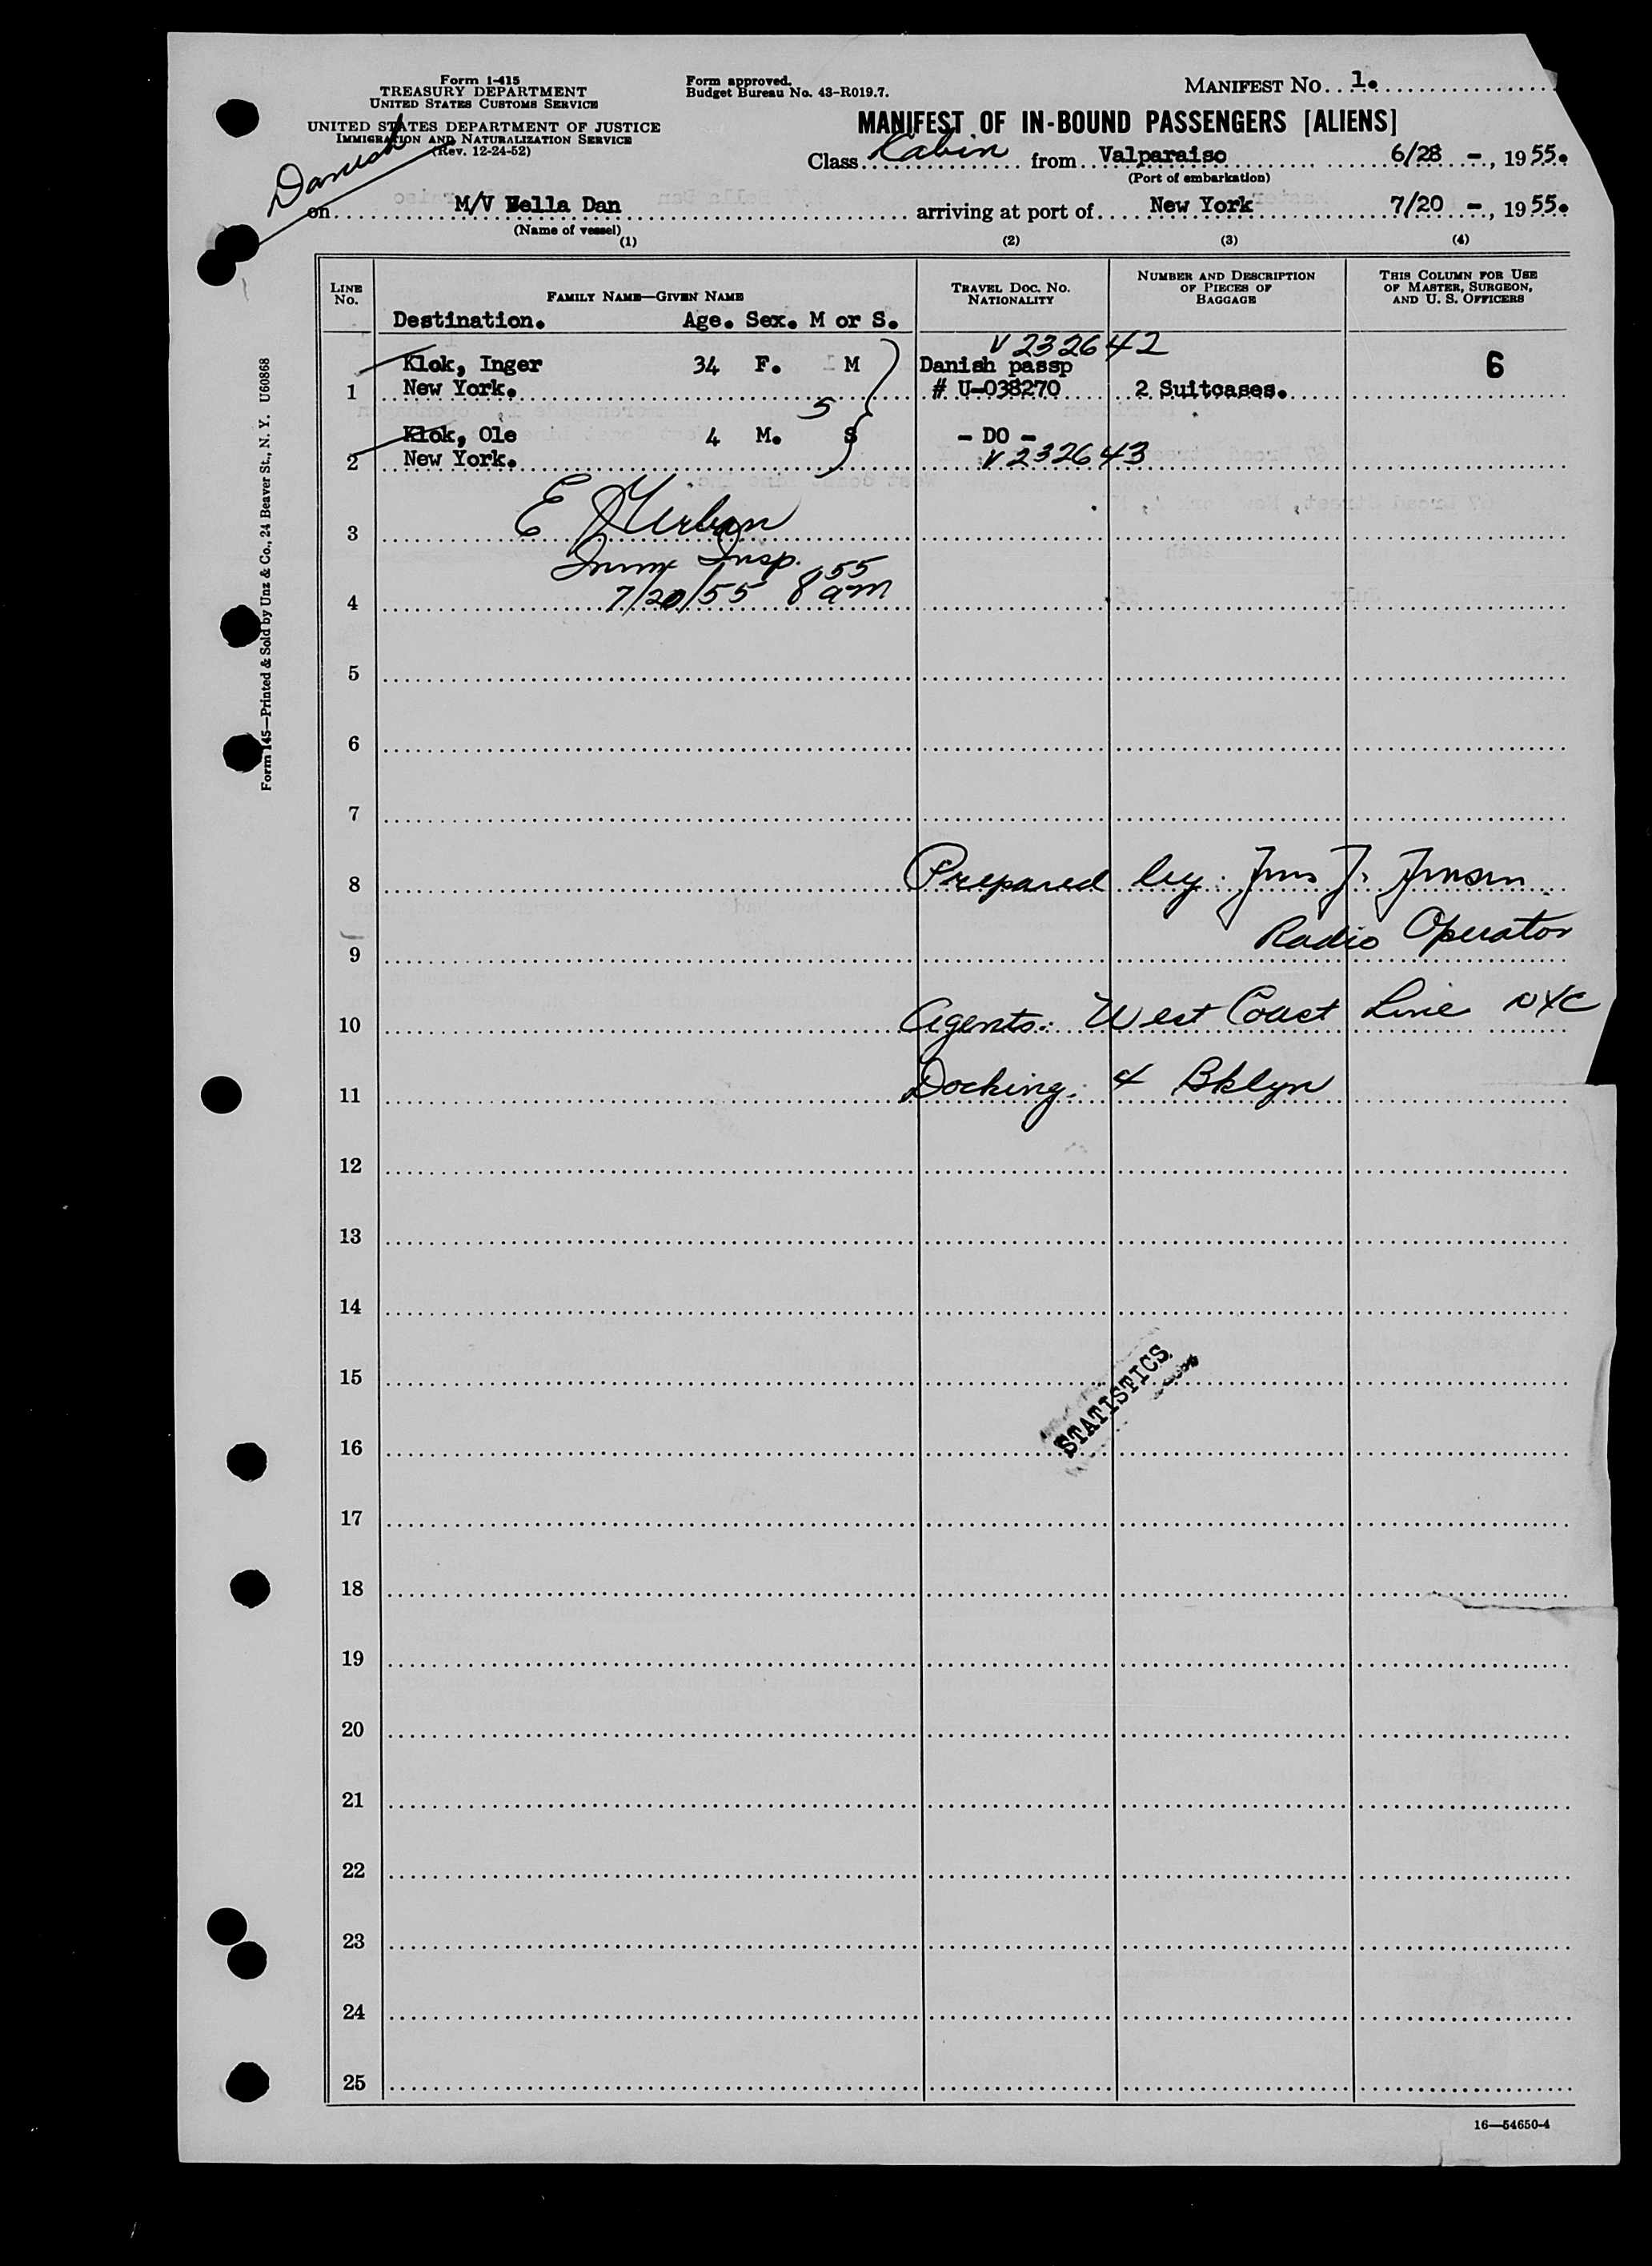 Form I-415
TREASURY DEPARTMENT
UNITED STATES CUSTOMS SERVICE
UNITED STATES DEPARTMENT OF JUSTICE
IMMIGRATION AND NATURALIZATION SERVICE
(Rev. 12-24-52)
Form approved.
Budget Bureau No. 43-R019.7.
MANIFEST NO. 1.
MANIFEST OF IN-BOUND PASSENGERS [ALIENS]
Class Cabin from Valparaiso 6/28 -, 1955.
(Port of embarkation)
Danish
on M/V Nella Dan arriving at port of New York 7/20 -, 1955.
(Name of vessel)
(1) (2) (3) (4)
LINE NO.
FAMILY NAME—GIVEN NAME
Destination. Age. Sex. M or S.
TRAVEL DOC. NO.
NATIONALITY
NUMBER AND DESCRIPTION
OF PIECES OF
BAGGAGE
THIS COLUMN FOR USE
OF MASTER, SURGEON,
AND U. S. OFFICERS
V 232642
Klok, Inger 34 F. M Danish passp 6
1 New York. # U-038270 2 Suitcases.
5
Klok, Ole 4 M. S - DO -
2 New York. V 232643
3 E
Imm Insp.
4 7/20/55 8 55 am
5
6
7
8 Prepared by: Jens J. Jensen
Radio Operator
9
10 Agents: West Coast Line NYC
11 Docking: 4 Bklyn
12
13
14
15
STATISTICS
16
17
18
19
20
21
22
23
24
25
16—54650-4
Form 145—Printed & Sold by Unz & Co., 24 Beaver St., N. Y. U60868